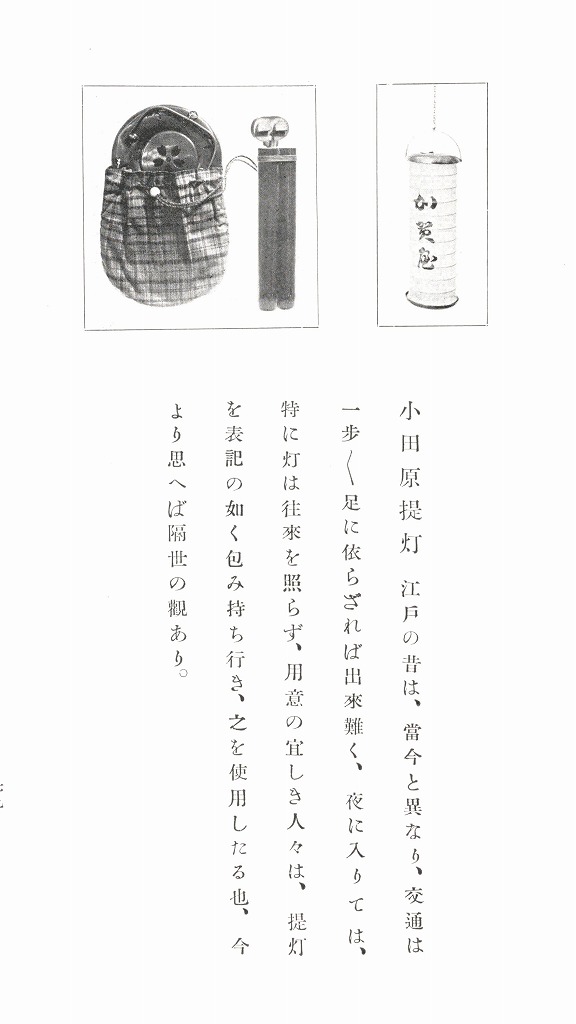 加賀屋
小田原提灯　江戸の昔は、當今と異なり、交通は
一步〱足に依らざれば出來難く、夜に入りては、
特に灯は往來を照らず、用意の宜しき人々は、提灯
を表記の如く包み持ち行き、之を使用したる也、今
より思へば隔世の觀あり。